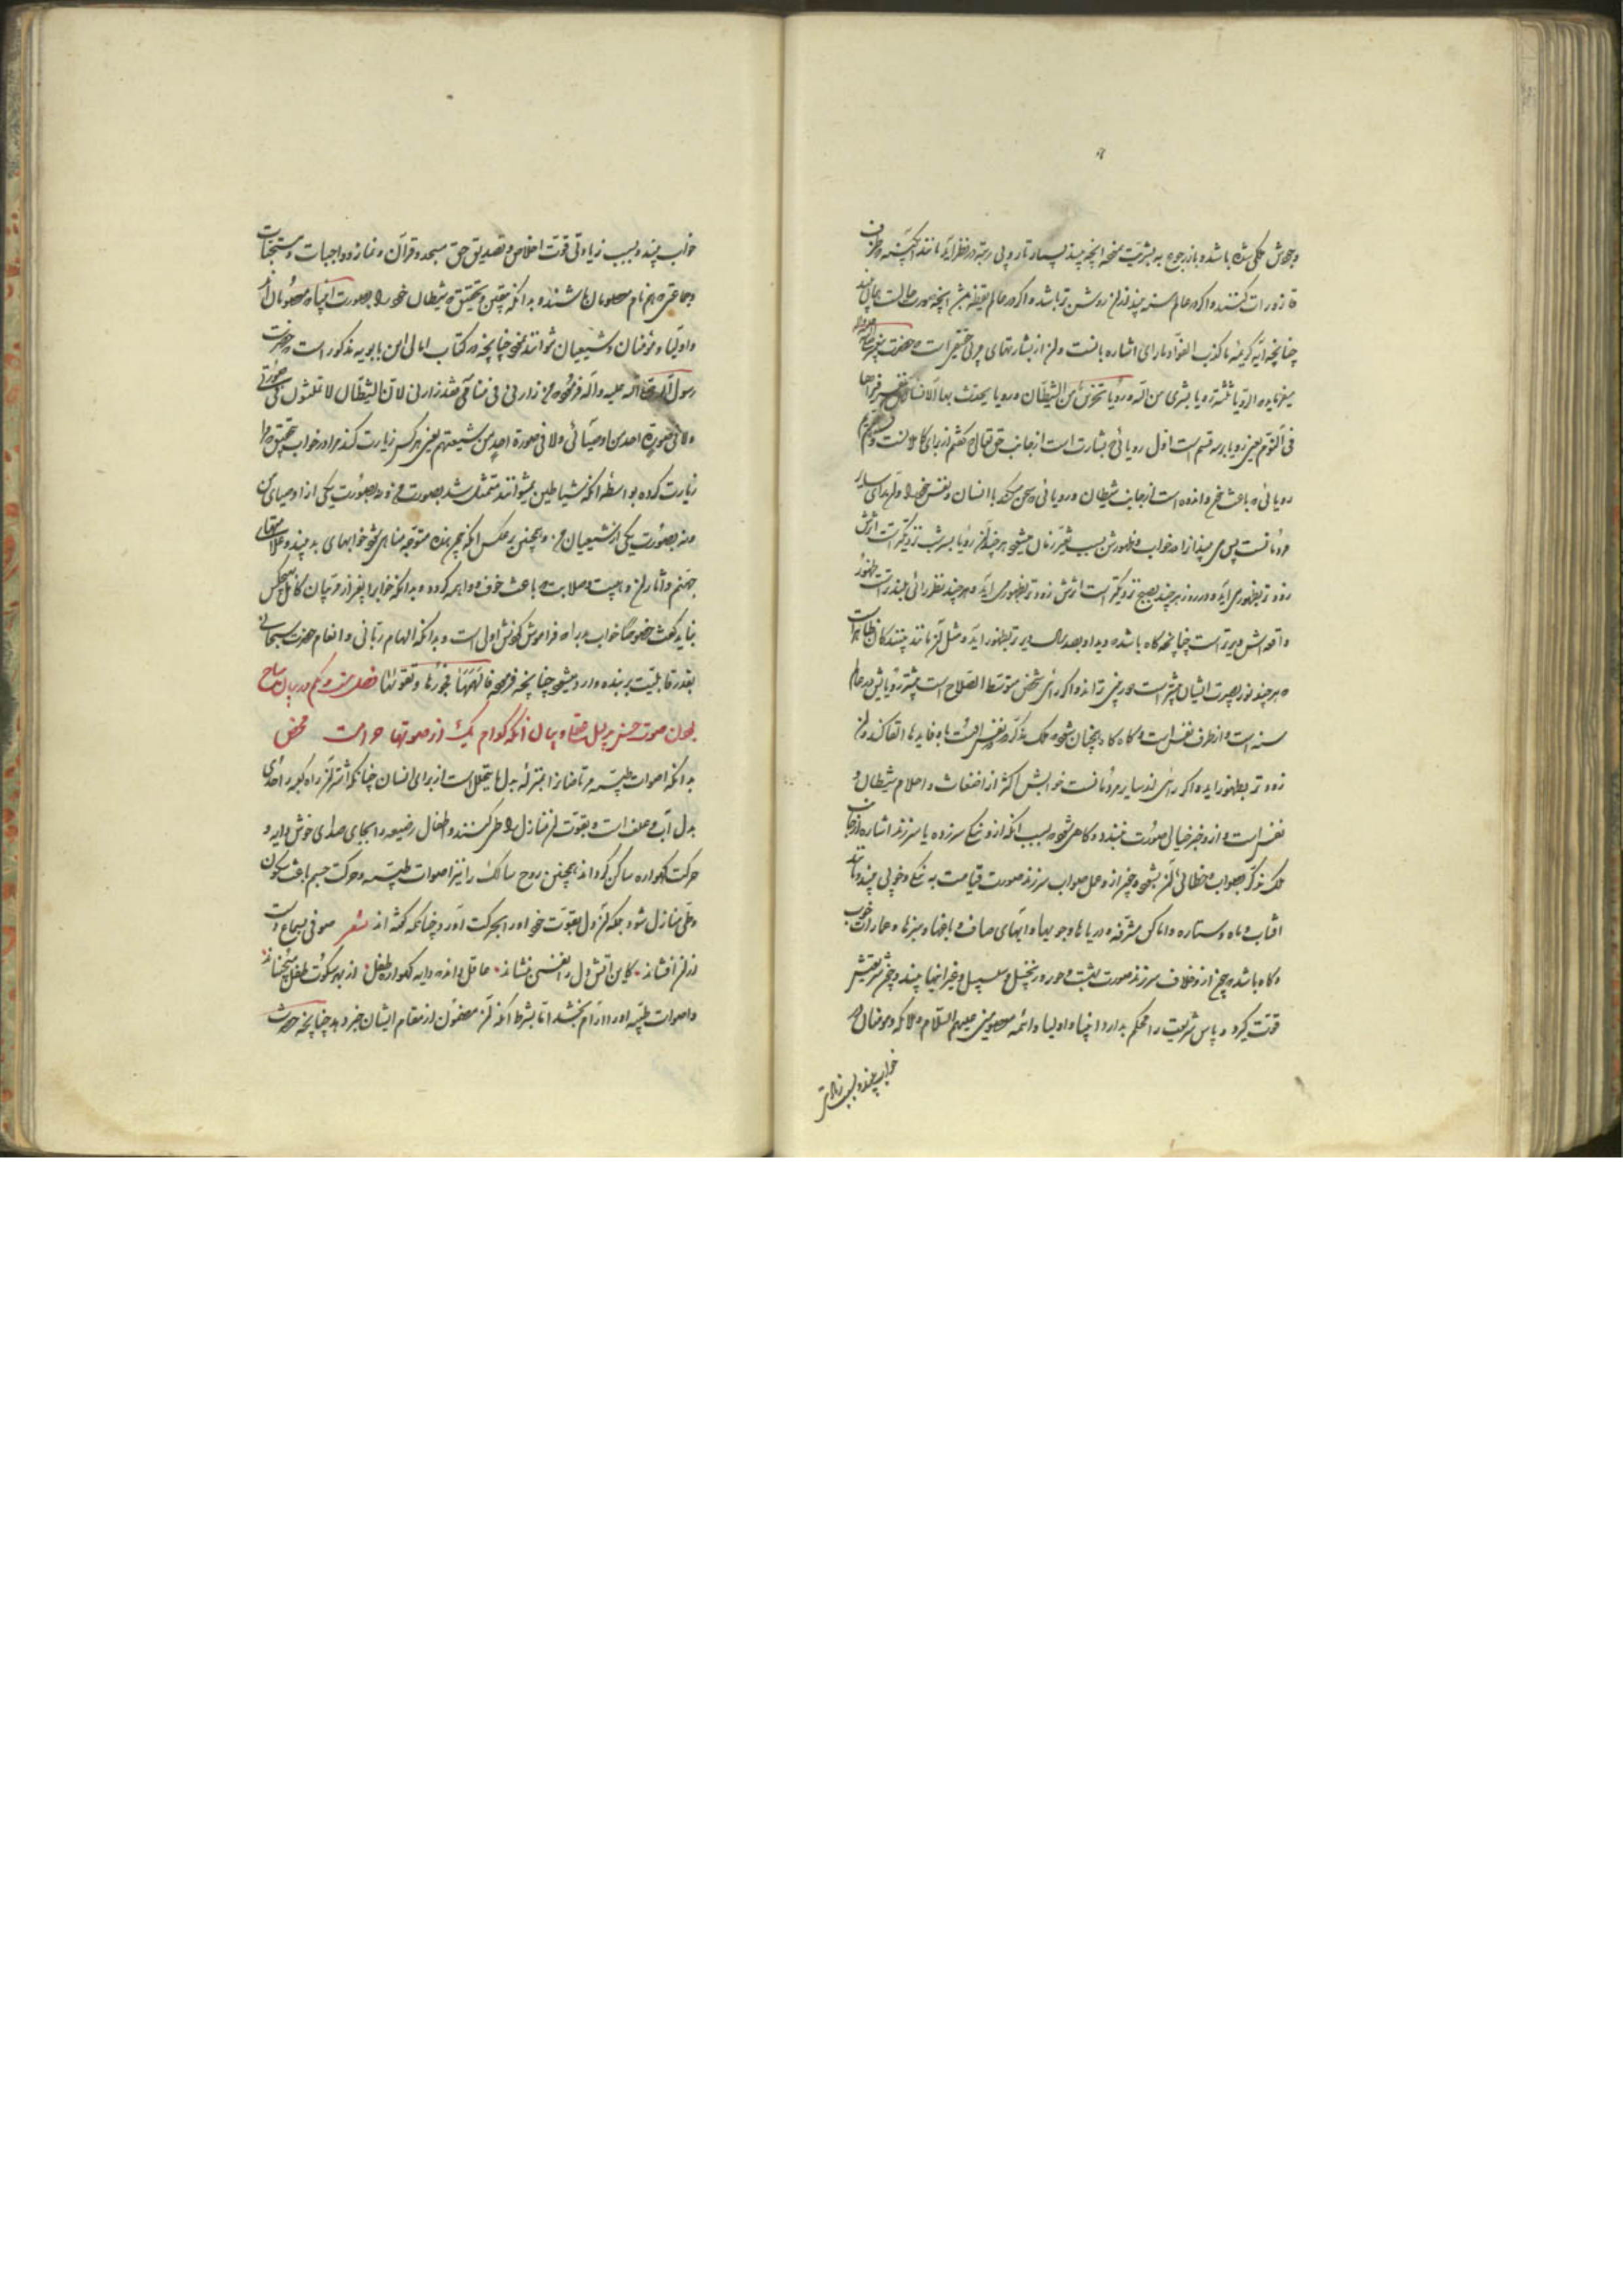 وجهش ملکی شده باشد و باز رجوع به بشریت نموده آنچه بیند بسیار تار و بی رتبه در نظر آید مانند آبگینه و ظرف
قاذورات کنند و اگر در عالم سنه بیند ازان روشن تر باشد و اگر در عالم یقظه مبشر آنچه صورت حالت بحال
چنانچه آیه کریمه ما کذب الفؤاد ما رای اشاره بآنست و از بشارتهای مرئی حقیقی است و حضرت پیغمبر
میفرماید الرؤیا ثلثة رؤیا بشری من الله و رؤیا تحزین من الشیطان و رؤیا یحدث بها الانسان نفسه فیراها
فی النوم یعنی رؤیا بر سه قسم است اول رویائی بشارت است از جانب حق تعالی و
رویائی که باعث غم و اندوه است از جانب شیطان و رویائی که سخن میکند با انسان و نفس خود
پس می بیند آنرا در خواب و ظهورش بسبب تغیر زمان میشود هر چند آن رؤیا بسر شب نزدیکتر است اثرش
زودتر بظهور می آید و در روز هر چند بصبح نزدیکتر است اثرش زودتر بظهور می آید و هر چند نظر رائی بلندتر است ظهور
واقعه اش دیرتر است چنانچه گاه باشد که دیده او بعد سال دیرتر بظهور آید و مثل آن مانند بینندگان
هر چند نور بصیرت ایشان بیشتر است دورتر بینی تواند و اگر رائی شخص متوسط الصلاح است بیشتر رؤیایش در عالم
سنه است و از طرف نفس است و گاه گاه همچنان شود که ملک مذکر در نفس القا کند و آن
زودتر بظهور آید و اگر رائی از سایر مردمانست خوابش اکثر از اضغاث و احلام شیطان و
نفس است و از وجه خیالی صورت بندد و گاهی شود بسبب آنکه ازو نیکی سر زده یا سر زند اشاره از جانب
ملک مذکر بصواب و خطائی آن بشود و چون از وی عمل صواب سر زند صورت قیامت به نیکی و خوبی بیند و یا
آفتاب و ماه و ستاره و اماکن مشرفه و دریاها و جویها و آبهای صاف و باغها و سبزها و عمارات خوب
و گاه باشد که چون ازو خلاف سر زند صورت بهشت و حور و نخیل و سلسبیل و غیر اینها بیند و چون شریعتش
قوت گیرد و پاس شریعت را محکم بدارد انبیا و اولیا و ائمه معصومین علیهم السلام و ملائکه و مومنان در
خواب بیند و بسبب زیادتی
خواب بیند و بسبب زیادتی قوت اخلاص و تصدیق حق مسجد و قرآن و نماز و واجبات و مستحبات
و جماعتی که هم نام معصومان باشند و بدانکه بیقین و تحقیق که شیطان خود را بصورت انبیا و معصومان
و اولیا و مؤمنان و شیعیان نتوانند نمود چنانچه در کتاب امالی ابن بابویه مذکور است که حضرت
رسول الله صلی الله علیه و آله فرموده من زارنی فی منامی فقد زارنی لان الشیطان لا یتمثل فی صورتی
ولا فی صورة احد من اوصیائی ولا فی صورة احد من شیعتهم یعنی هر کس زیارت کند مرا در خواب بتحقیق مرا
زیارت کرده بواسطه آنکه شیاطین نمیتوانند متمثل شد بصورت من و نه بصورت یکی از اوصیای من
و نه بصورت یکی از شیعیان من و همچنین بر عکس آنکه چون بنده متوجه مناهی شود خوابهای بد بیند و علامتهای
جهنم و آثار آن و هیبت و صلابت که باعث خوف و واهمه گردد و بدانکه خواب را بغیر از مربیان کامل بهیچکس
نباید گفت خصوصا خواب بد را که فراموش کردنش اولی است و بدانکه الهام ربانی و انعام حضرت سبحانی
بقدر قابلیت بر بنده وارد میشود چنانچه فرموده فالهمها فجورها و تقوئها فصل در بیان مباح
بودن صوت حسن بدلیل عقل و بیان آنکه کدام یک از صوتها حرامست محض
بدانکه اصوات طیبه مرتاضان را بمنزله بدل ما یتحلل است از برای انسان چنانکه اشتران راه کعبه را حدی
بدل آب و علف است و بقوت آن منازل را طی کنند و اطفال رضیعه را بجای صدای خوش دایه و
حرکت گهواره ساکن گرداند همچنین روح سالک را نیز اصوات طیبه و حرکت جسم باعث سکون
و طی منازل شود بلکه آن دل بقوت خود او را بحرکت آورد چنانکه گفته اند شعر صوفی بسماع دست
ازان افشاند کاین آتش دل را نفسی بنشاند عاقل داند که دایه گهواره طفل از بهر سکوت طفل میجنباند
و اصوات طیبه او را آرام بخشد اما بشرط آنکه آن مضمون از مقام ایشان خبر دهد چنانچه حضرت